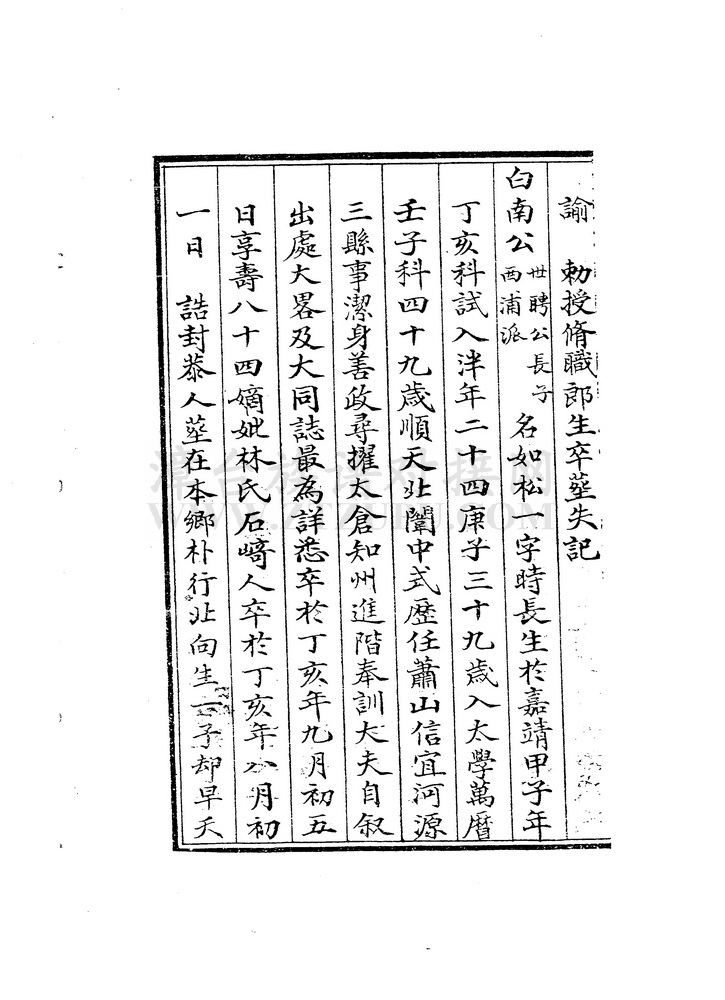 諭　勅授脩職郎生卒塋失記
白南公　世聘公長子　西浦派　名如松一字時長生於嘉靖甲子年
丁亥科試入泮年二十四庚子三十九歲入太學萬曆
壬子科四十九歲順天北闈中式歷任蕭山信宜河源
三縣事潔身善政尋擢太倉知州進階奉訓大夫自叙
出處大畧及大同誌最為詳悉卒於丁亥年九月初五
日享壽八十四嫡妣林氏石﨑人卒於丁亥年八月初
一日　誥封恭人塋在本鄉朴行北向生一子却早夭
WWW.ZTZUPU.COM